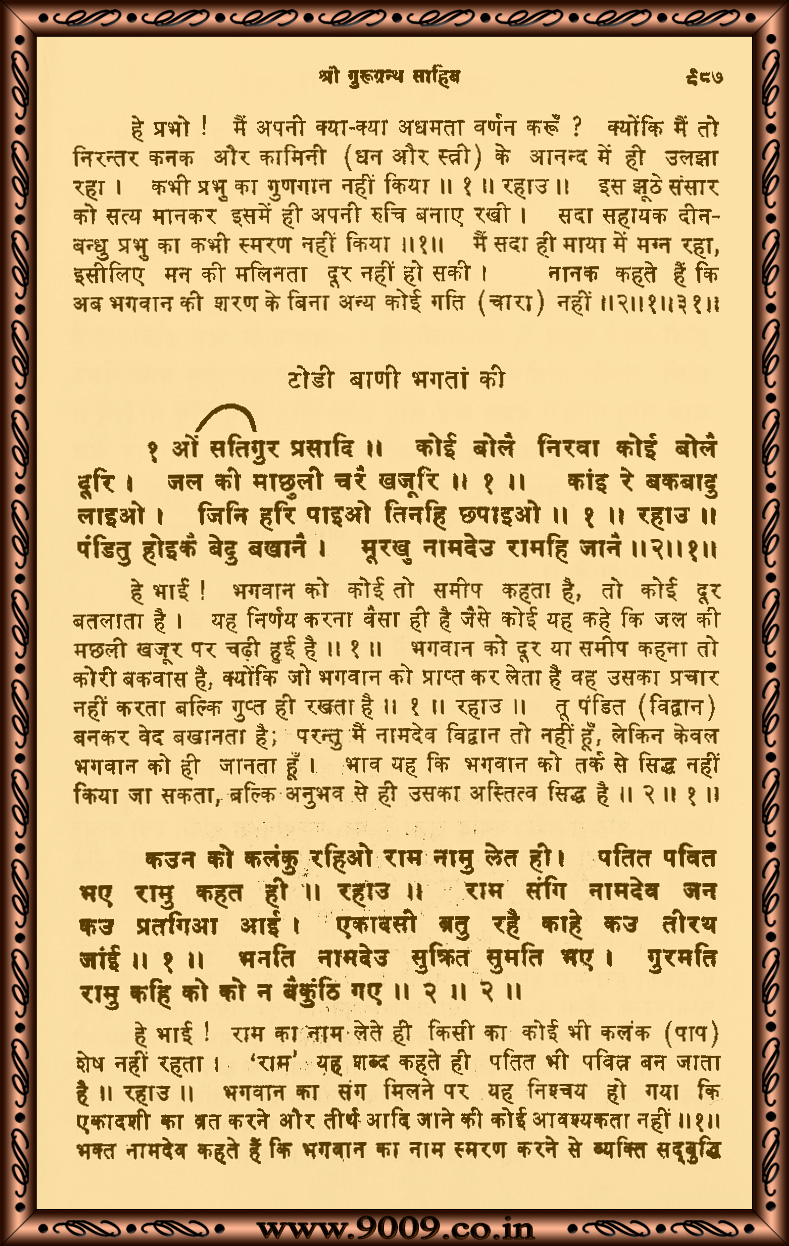 श्री गुरूग्रन्थ साहिब ९८७
हे प्रभो ! मैं अपनी क्या-क्या अधमता वर्णन करूँ ? क्योंकि मैं तो
निरन्तर कनक और कामिनी (धन और स्त्री) के आनन्द में ही उलझा
रहा । कभी प्रभु का गुणगान नहीं किया ॥ १ ॥ रहाउ ॥ इस झूठे संसार
को सत्य मानकर इसमें ही अपनी रुचि बनाए रखी । सदा सहायक दीन-
बन्धु प्रभु का कभी स्मरण नहीं किया ॥१॥ मैं सदा ही माया में मग्न रहा,
इसीलिए मन की मलिनता दूर नहीं हो सकी । नानक कहते हैं कि
अब भगवान की शरण के बिना अन्य कोई गति (चारा) नहीं ॥२॥१॥३१॥
टोडी बाणी भगतां की
१ ओं सतिगुर प्रसादि ॥ कोई बोलै निरवा कोई बोलै
दूरि । जल की माछुली चरै खजूरि ॥ १ ॥ कांइ रे बकबादु
लाइओ । जिनि हरि पाइओ तिनहि छपाइओ ॥ १ ॥ रहाउ ॥
पंडितु होइकै बेदु बखानै । मूरखु नामदेउ रामहि जानै ॥२॥१॥
हे भाई ! भगवान को कोई तो समीप कहता है, तो कोई दूर
बतलाता है । यह निर्णय करना वैसा ही है जैसे कोई यह कहे कि जल की
मछली खजूर पर चढ़ी हुई है ॥ १ ॥ भगवान को दूर या समीप कहना तो
कोरी बकवास है, क्योंकि जो भगवान को प्राप्त कर लेता है वह उसका प्रचार
नहीं करता बल्कि गुप्त ही रखता है ॥ १ ॥ रहाउ ॥ तू पंडित (विद्वान)
बनकर वेद बखानता है; परन्तु मैं नामदेव विद्वान तो नहीं हूँ, लेकिन केवल
भगवान को ही जानता हूँ । भाव यह कि भगवान को तर्क से सिद्ध नहीं
किया जा सकता, बल्कि अनुभव से ही उसका अस्तित्व सिद्ध है ॥ २ ॥ १ ॥
कउन को कलंकु रहिओ राम नामु लेत ही । पतित पवित
भए रामु कहत ही ॥ रहाउ ॥ राम संगि नामदेव जन
कउ प्रतगिआ आई । एकादसी ब्रतु रहै काहे कउ तीरथ
जांई ॥ १ ॥ भनति नामदेउ सुक्रित सुमति भए । गुरमति
रामु कहि को को न बैकुंठि गए ॥ २ ॥ २ ॥
हे भाई ! राम का नाम लेते ही किसी का कोई भी कलंक (पाप)
शेष नहीं रहता । ‘राम’ यह शब्द कहते ही पतित भी पवित्र बन जाता
है ॥ रहाउ ॥ भगवान का संग मिलने पर यह निश्चय हो गया कि
एकादशी का व्रत करने और तीर्थ आदि जाने की कोई आवश्यकता नहीं ॥१॥
भक्त नामदेव कहते हैं कि भगवान का नाम स्मरण करने से व्यक्ति सद्बुद्धि
www.9009.co.in